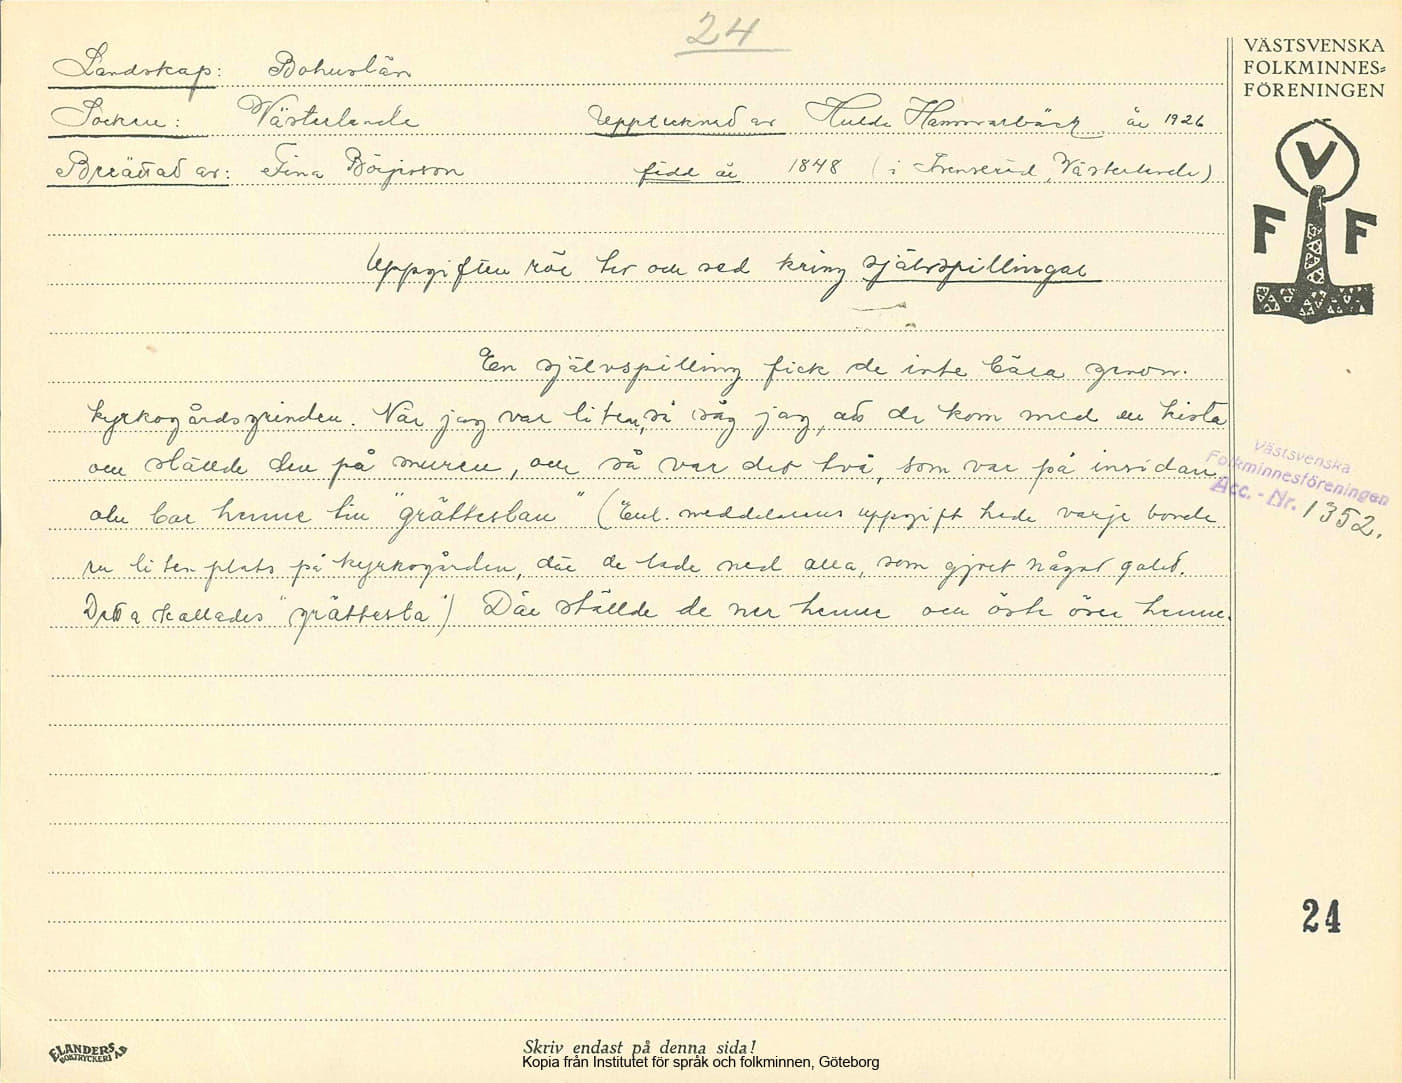 24
VÄSTSVENSKA
FOLKMINNES=
FÖRENINGEN
V
F F
Landskap: Bohuslän
Socken: Västerlanda Upptecknad av Hulda Hammarbäck år 1926
Berättad av: Fina Börjesson född år 1848 (i Västerlanda)
Uppgiften rör tro och sed kring självspillingar
En självspilling fick de inte bära genom
kyrkogårdsgrinden. När jag var liten, så såg jag, att de kom med en kista
och ställde den på muren, och så var det två, som var på insidan
och bar henne till "grättestan" (Enl. meddelarens uppgift hade varje bonde
en liten plats på kyrkogården, där de lade ned alla, som gjort något galet.
Detta kallades "grättesta") Där ställde de ner henne och öste över henne.
Västsvenska
Folkminnesföreningen
Acc. - Nr. 1352.
24
ELANDERS
BOKTRYCKERI AB
Skriv endast på denna sida!
Kopia från Institutet för språk och folkminnen, Göteborg